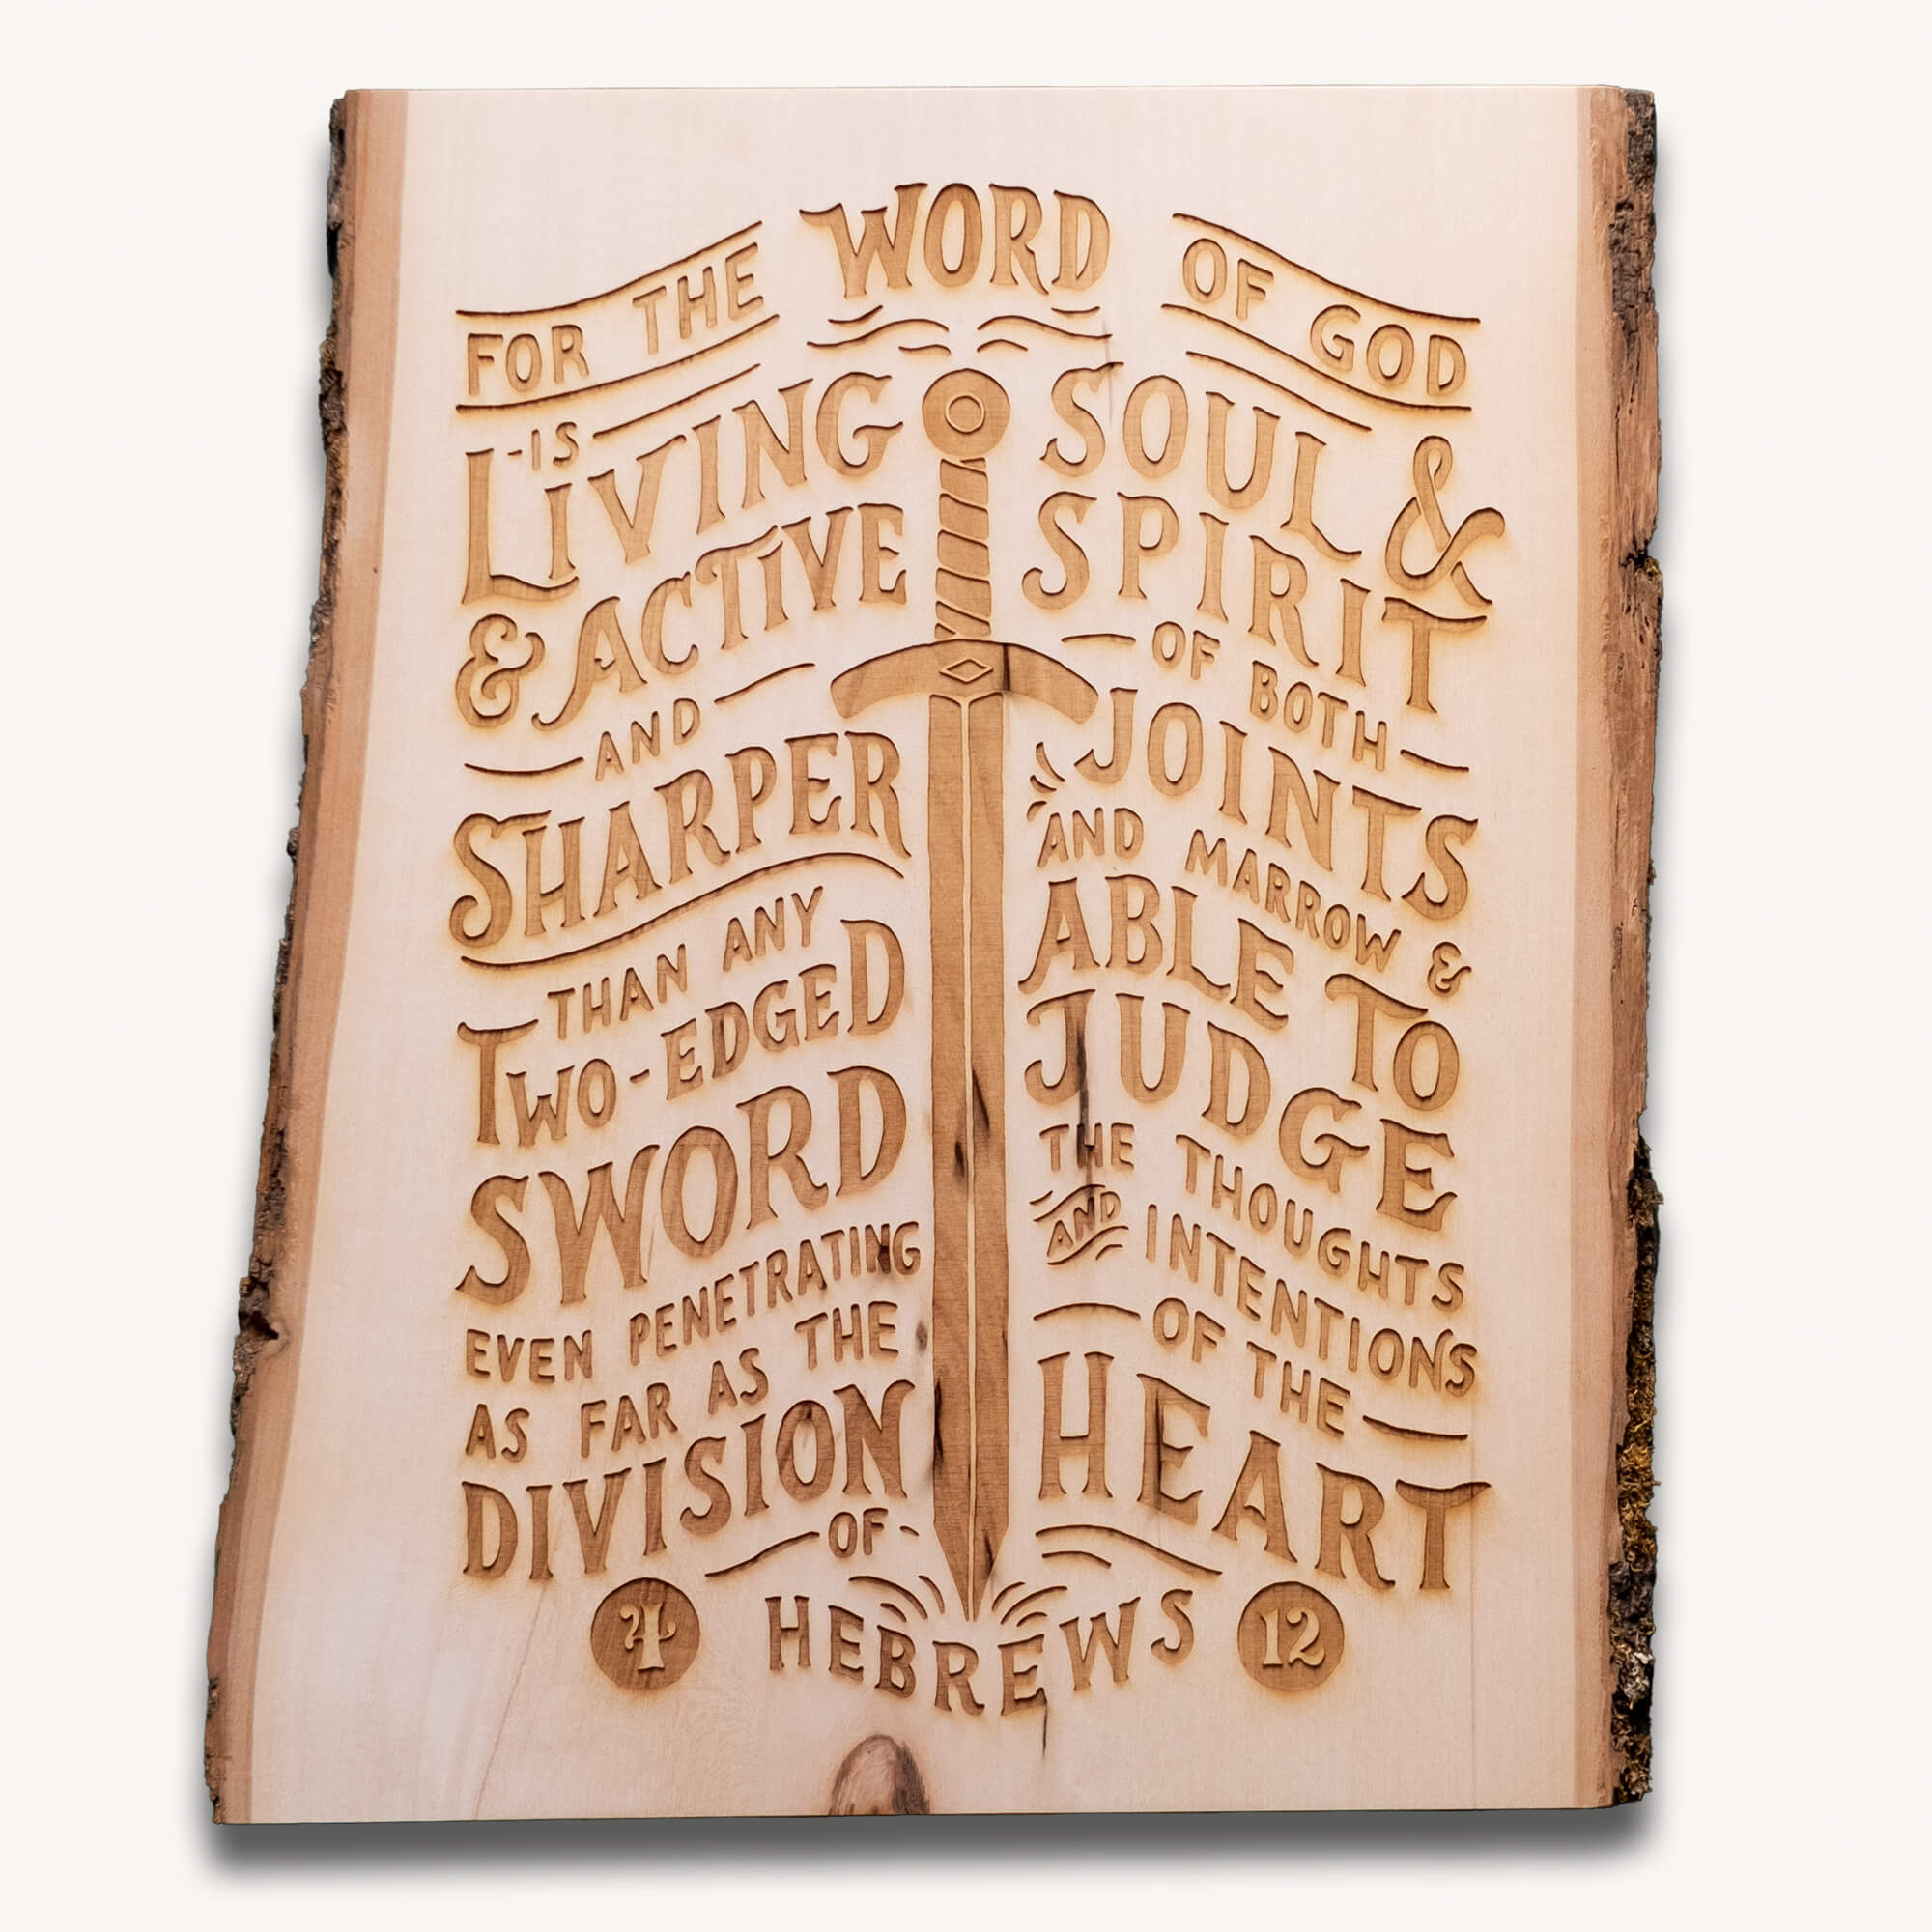 FOR THE WORD OF GOD
-IS
LIVING
& ACTIVE
AND
SHARPER
THAN ANY
TWO-EDGED
SWORD
EVEN PENETRATING
AS FAR AS THE
DIVISION
OF-
SOUL &
SPIRIT
OF BOTH
JOINTS
AND MARROW &
ABLE TO
JUDGE
THE THOUGHTS
AND INTENTIONS
OF THE
HEART
4 HEBREWS 12